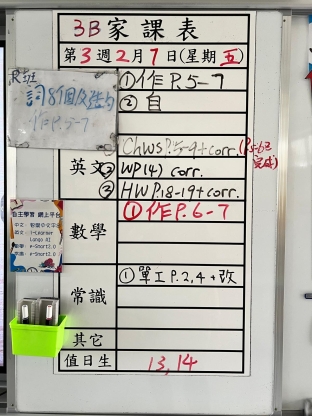 3B家課表
第3週2月7日(星期五)
①作P.5-7
②自
R班
詞8個及造句
作P.5-7
英文
①Chws P.5-9+corr. (P.5-6已完成)
②WP(4) corr.
③HW P.18-19+corr.
數學
①作P.6-7
自主學習 網上平台
中文:
英文: i-Learner
Lango AI
數學: e-Smart2.0
常識: e-Smart2.0
常識
①單工P.2,4+改
其它
值日生
13,14